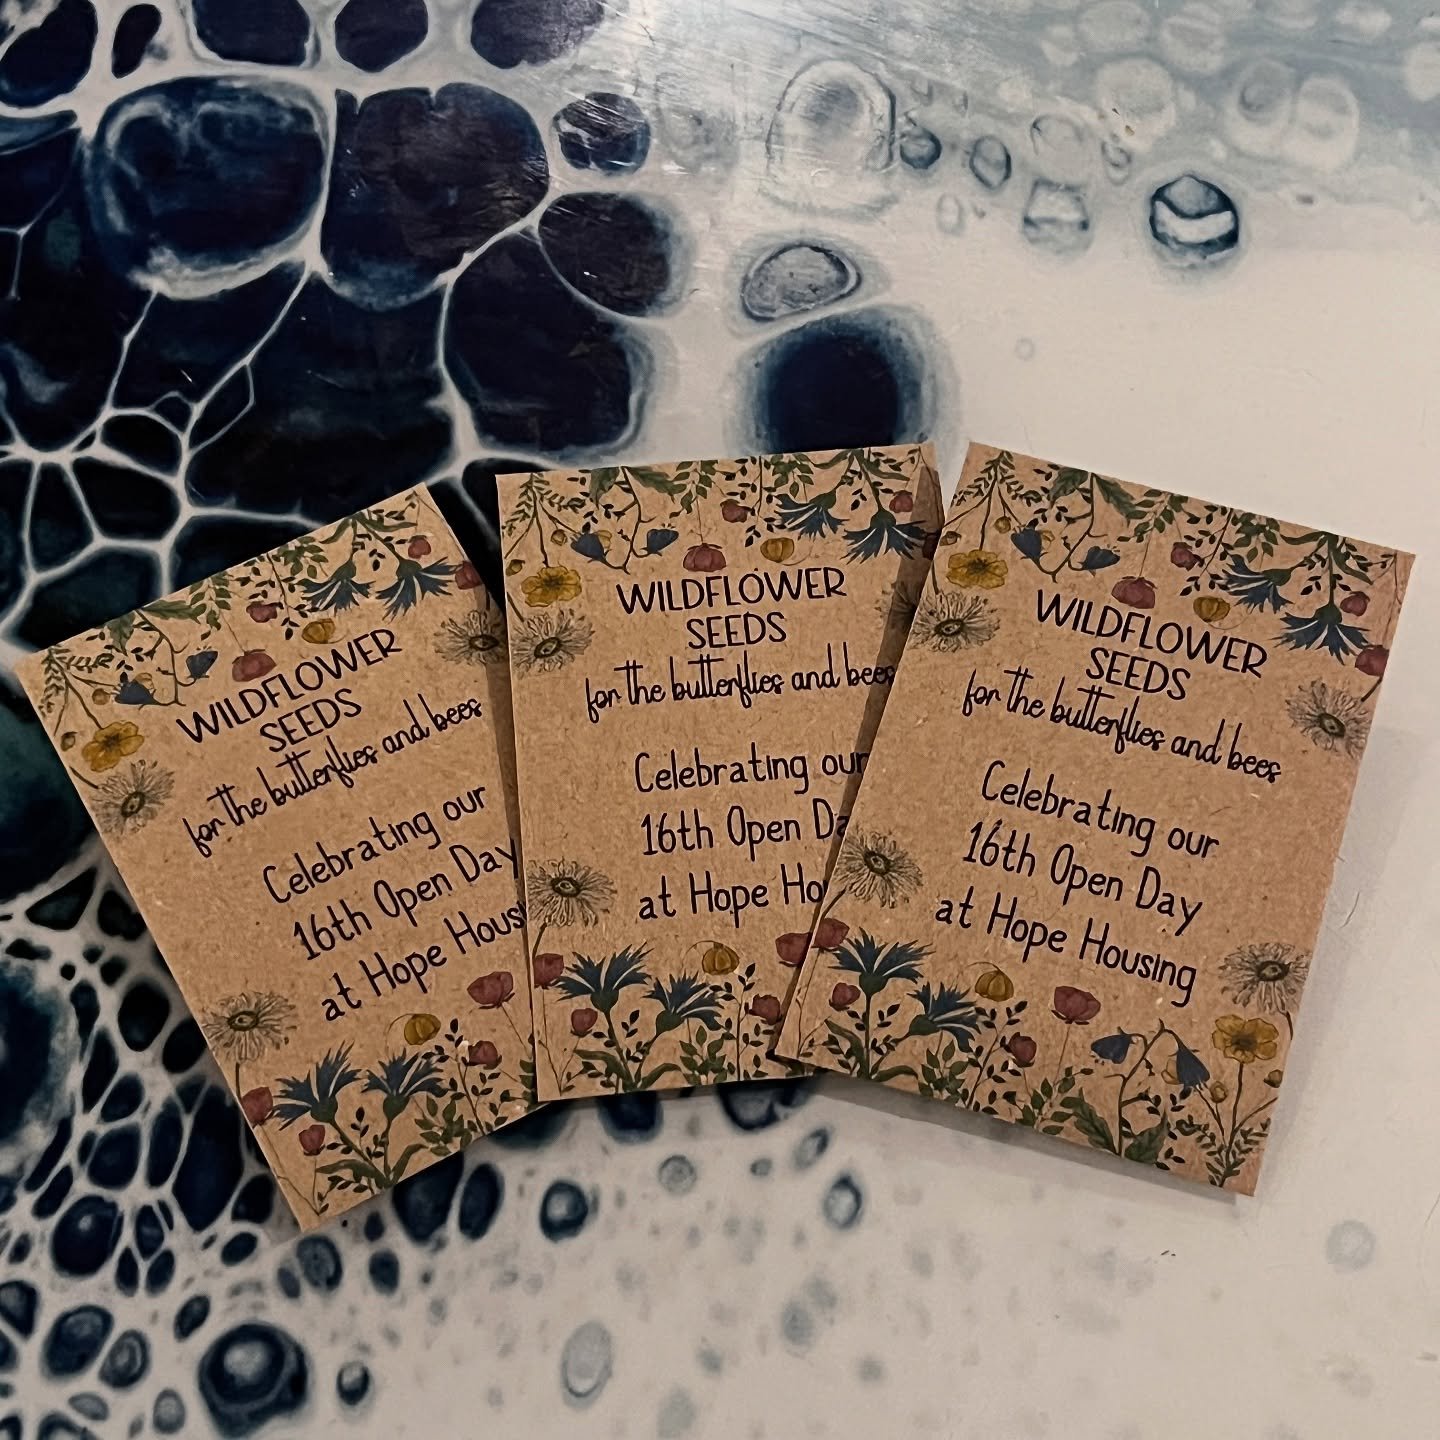 WILDFLOWER
SEEDS
for the butterflies and bees
Celebrating our
16th Open Day
at Hope Hous
WILDFLOWER
SEEDS
for the butterflies and bees
Celebrating our
16th Open Da
at Hope Ho
WILDFLOWER
SEEDS
for the butterflies and bees
Celebrating our
16th Open Day
at Hope Housing